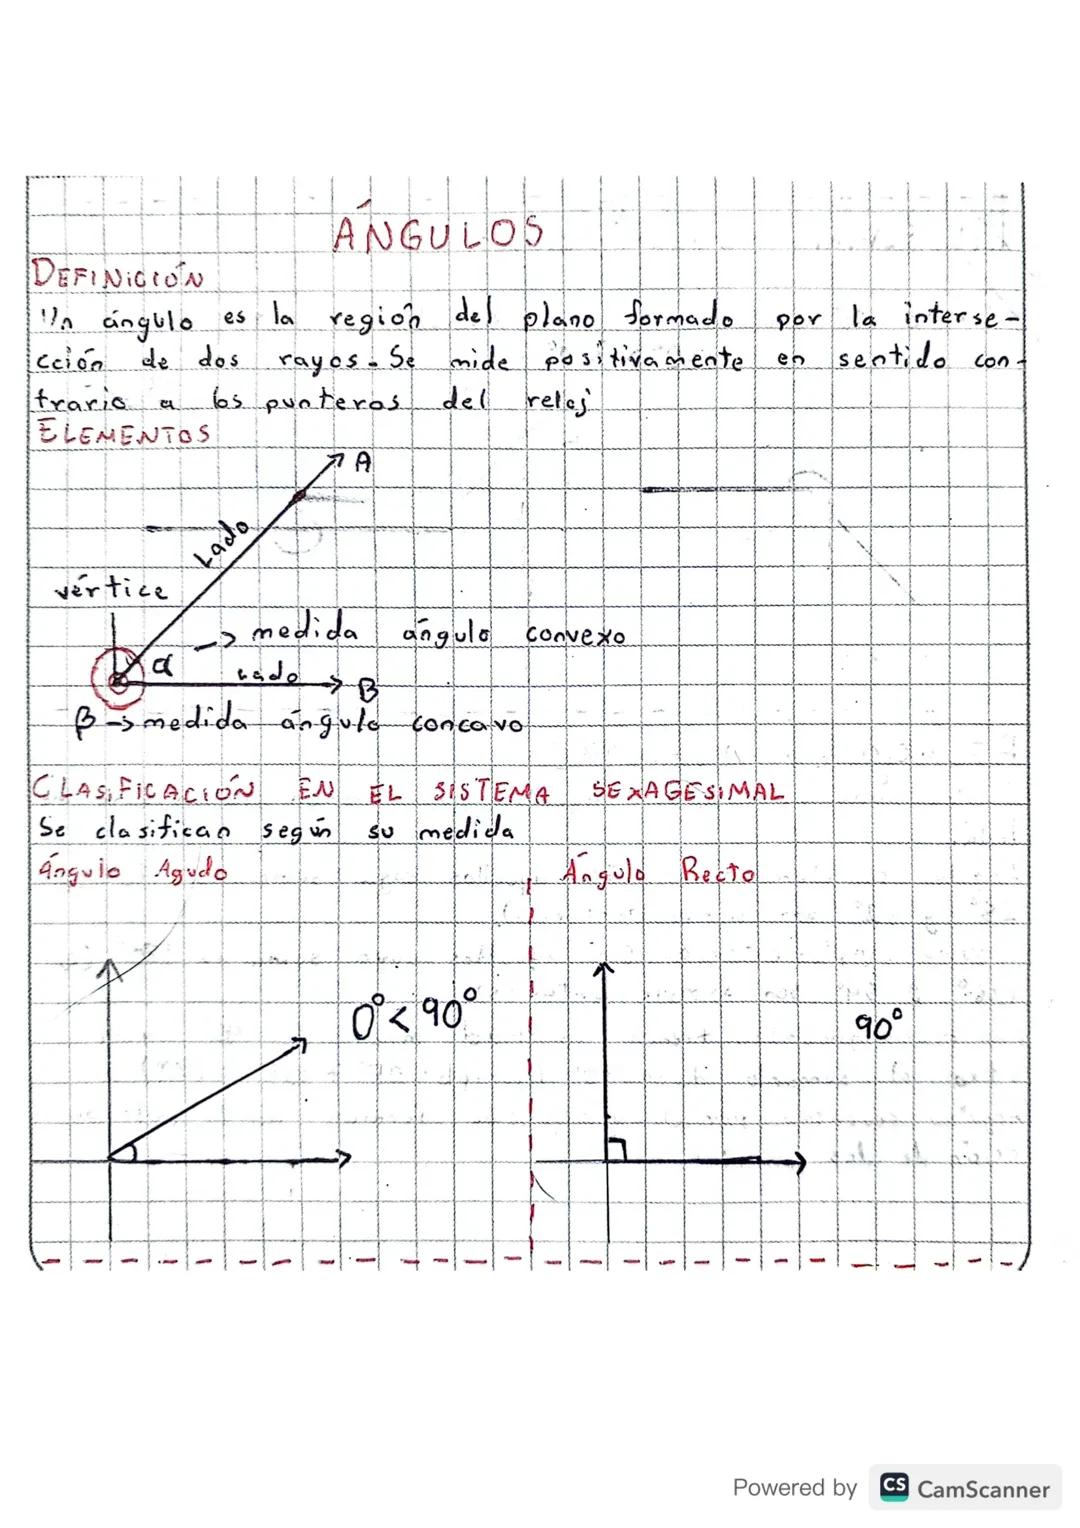 ÁNGULOS
DEFINICIÓN
Un ángulo es la región del plano formado por la interse-
cción de dos rayos. Se mide positivamente en sentido con-
trario a los punteros del reloj
ELEMENTOS
A
Lado
vértice
α -> medida ángulo convexo
Lado
B
β -> medida ángulo concavo
CLASIFICACIÓN EN EL SISTEMA SEXAGESIMAL
Se clasifican según su medida
Ángulo Agudo
Ángulo Recto
0° < 90°
90°
Powered by CS CamScanner